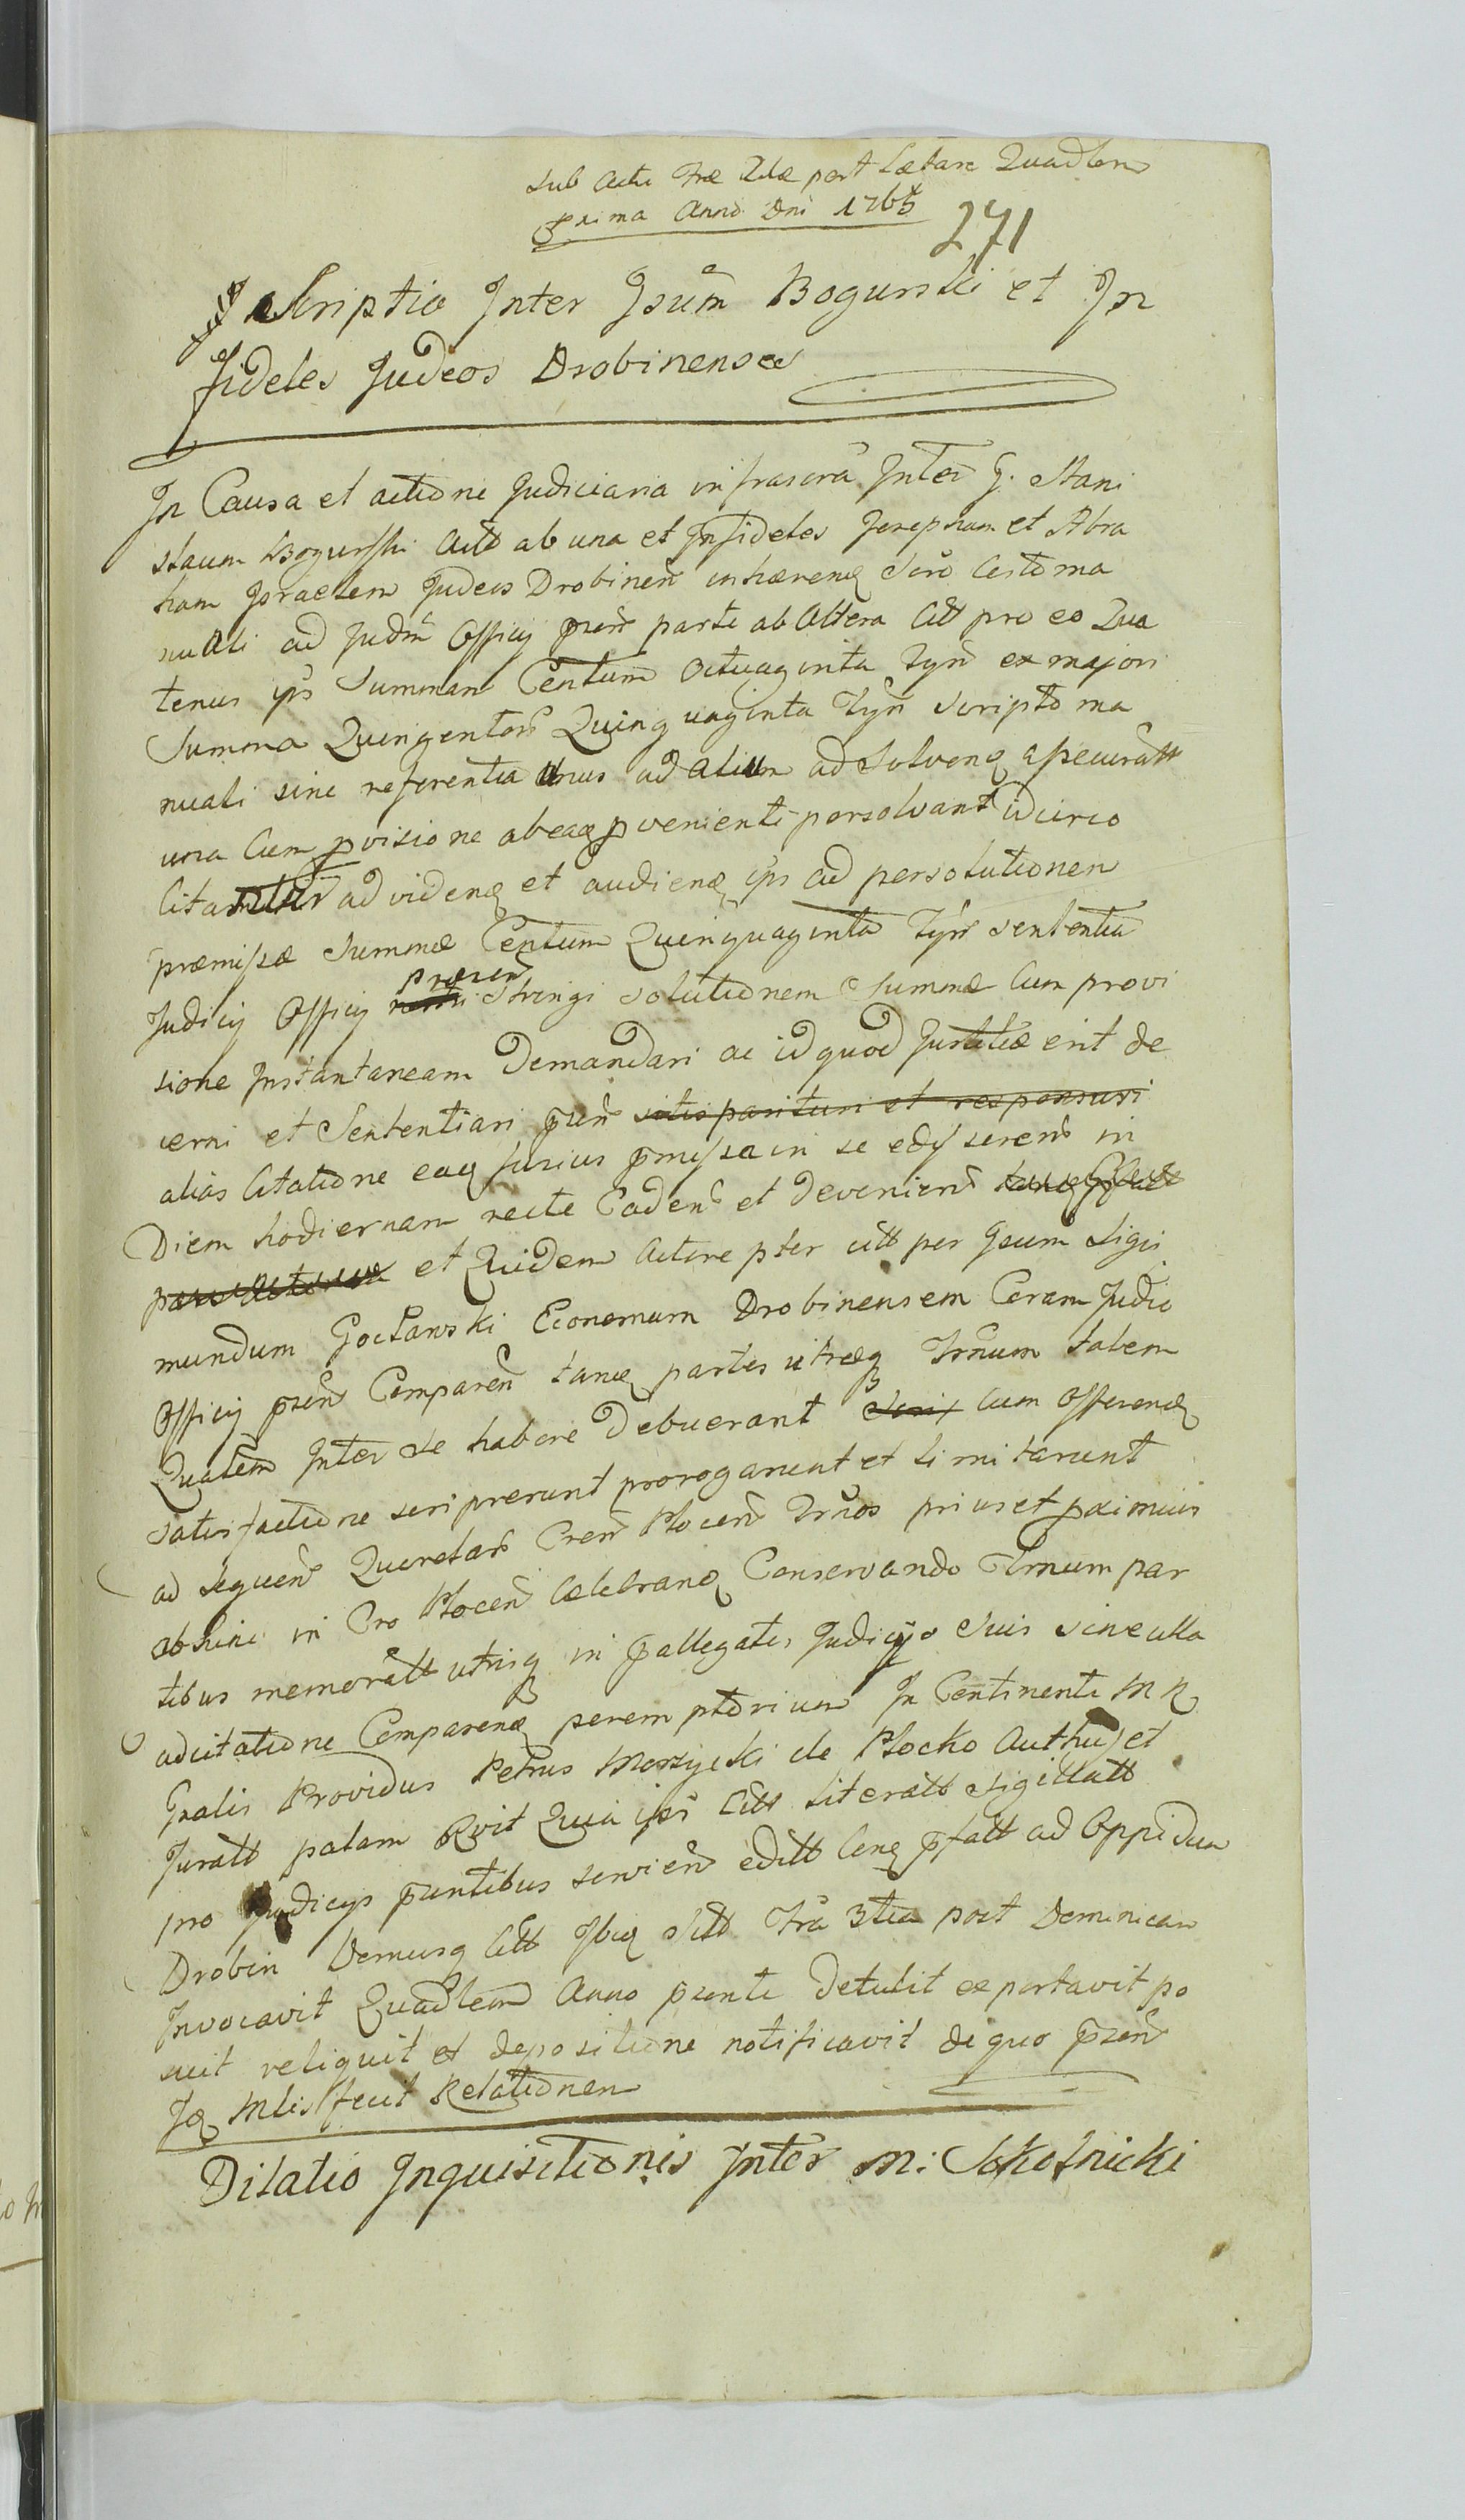 Sub Actu Fræ 2dæ post Lætare Quadlem
prima Anno Dni 1765
271
Scriptio Inter Gsum Bogurski et In
fideles Judeos Drobinenses
In Causa et actione Judiciaria infrascra Inter G. Stani
slaum Bogurski Actt ab una et Infideles Josephum et Abra
ham Israelem Judeos Drobinen inhærenq Scro Certo ma
nuali ad Judm Officy præn parte ab Altera Citt pro eo Qua
tenus ips Summam Centum Octuaginta Tyn ex majori
Summa Quingentor Quinquaginta Tyn scripto ma
nuali sine referentia Unus ad alium adsolvenq assecuratt
una Cum pvisione abeaq pvenienti persolvant idcirco
Citantur ad videnq et audienq ips ad persolutionem
præmissæ Summæ Centum Quinquaginta Tyn sententia
Judicy Officy præsen Stringi solutionem Summæ Cum provi
sione Instantaneam Demandari ac id quod Justitiæ erit de
cerni et Sententiari præn satis parituri et responsuri
alias Citatione eaq fusius pmissa in se edisseren in
Diem hodiernam recte Caden et devenien
pars Actorea et Quidem Actore pter citt per Gsum Sigis
mundum Gocławski Economum Drobinensem Coram Judio
Officy præn Comparen tanq partes utræq Trnum talem
Qualem Inter se habere Debuerant Scri Cum offerenq
satisfactione scripserunt prorogarunt et limitarunt
ad sequen Querelar Cren Plocen Trnos prius et pximius
abhinc in Cro Plocen Celebranq Conservando Trnum par
tibus memoratt utrisq in pallegatis Judicys Suis sine ulla
adcitatione Comparenq peremptorium In Continenti M R
Gnalis Providus Petrus Morzycki de Plocko Authus et
Juratt palam Rvit Quia ips Citt Literatt Sigillatt
pro Judicys pæntibus servien editt Cenq pfatt ad Oppidum
Drobin Domusq Citt Ibiq Sitt Fra 3tia post Dominicam
Invocavit Quadlem Anno pænti Detulit exportavit po
suit reliquit et depositione notificavit de quo præn
Iq Mlis fecit Relationem
Dilatio Inquisitionis Inter M: Sokolnicki